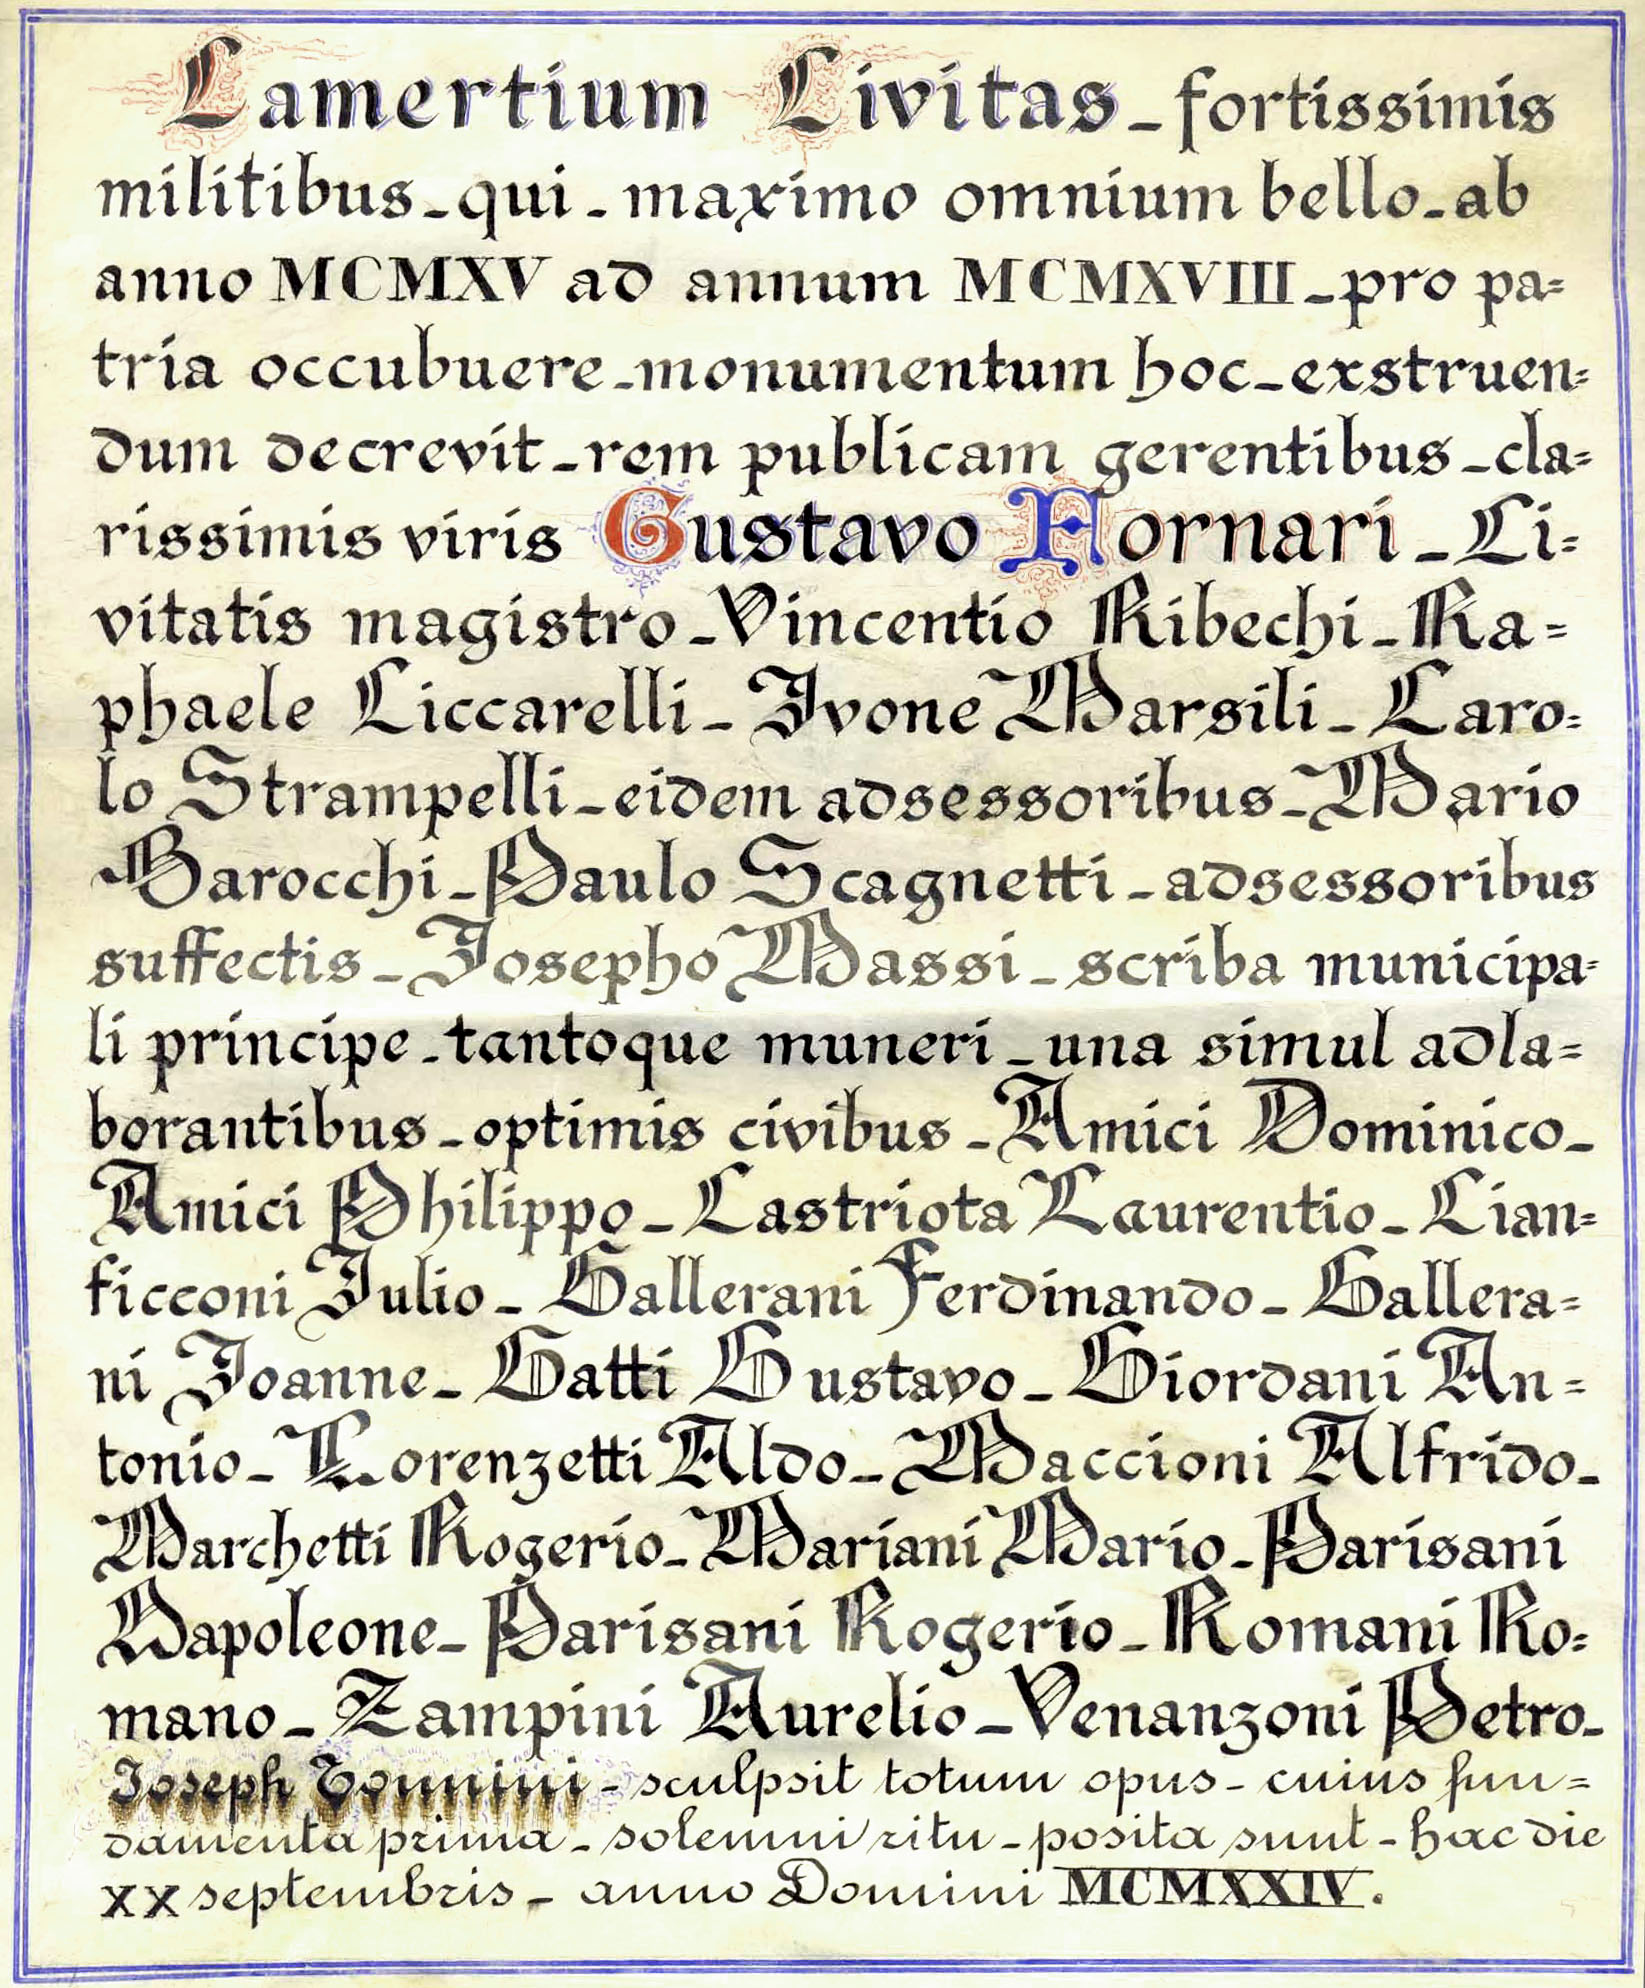 Camertium Civitas - fortissimis
militibus - qui - maximo omnium bello - ab
anno MCMXV ad annum MCMXVIII - pro pa=
tria occubuere - monumentum hoc - exstruen=
dum decrevit - rem publicam gerentibus - cla=
rissimis viris Gustavo Fornari - Ci=
vitatis magistro - Vincentio Ribechi - Ra=
phaele Ciccarelli - Ivone Marsili - Caro=
lo Strampelli - eidem adsessoribus - Mario
Barocchi - Paulo Scagnetti - adsessoribus
suffectis - Josepho Massi - scriba municipa=
li principe - tantoque muneri - una simul adla=
borantibus - optimis civibus - Amici Dominico -
Amici Philippo - Castriota Laurentio - Cian=
ficconi Julio - Gallerani Ferdinando - Gallera=
ni Joanne - Gatti Gustavo - Giordani An=
tonio - Lorenzetti Aldo - Maccioni Alfrido -
Marchetti Rogerio - Mariani Mario - Parisani
Napoleone - Parisani Rogerio - Romani Ro=
mano - Zampini Aurelio - Venanzoni Petro -
Joseph Tonnini - sculpsit totum opus - cuius fun=
damenta prima - solemni ritu - posita sunt - hac die
XX septembris - anno Domini MCMXXIV.